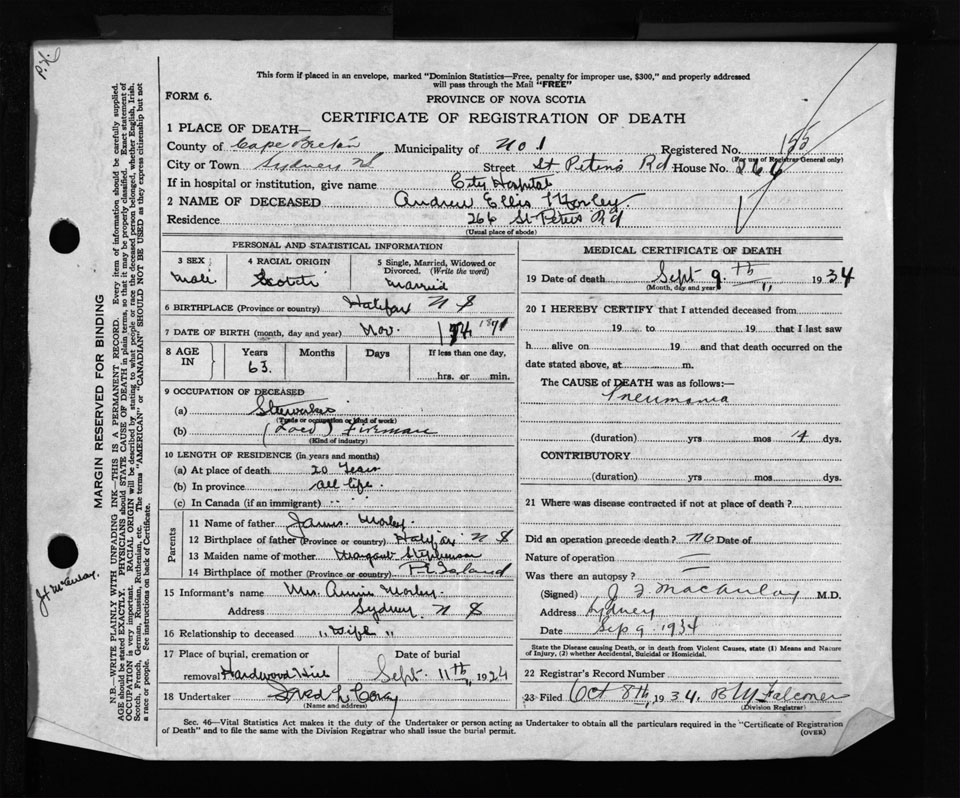 P.X.
This form if placed in an envelope, marked "Dominion Statistics—Free, penalty for improper use, $300," and properly addressed
will pass through the Mail "FREE"
FORM 6.
PROVINCE OF NOVA SCOTIA
CERTIFICATE OF REGISTRATION OF DEATH
1 PLACE OF DEATH—
County of Cape Breton Municipality of No 1 Registered No. 155
(For use of Registrar General only)
City or Town Sydney NS Street St Peters Rd House No. 266
If in hospital or institution, give name City Hospital
2 NAME OF DECEASED Andrew Ellis Morley
Residence 266 St Peters Rd
(Usual place of abode)
PERSONAL AND STATISTICAL INFORMATION
3 SEX 4 RACIAL ORIGIN 5 Single, Married, Widowed or
Divorced. (Write the word)
Male Scotch Married
6 BIRTHPLACE (Province or country) Halifax N S
7 DATE OF BIRTH (month, day and year) Nov. 1871
8 AGE IN Years Months Days If less than one day,
63. hrs. or min.
9 OCCUPATION OF DECEASED
(a)
(Trade or occupation or kind of work)
(b) (Loco) Fireman
(Kind of industry)
10 LENGTH OF RESIDENCE (in years and months)
(a) At place of death 20 Years
(b) In province all life.
(c) In Canada (if an immigrant)
Parents
11 Name of father James Morley.
12 Birthplace of father (Province or country) Halifax N S
13 Maiden name of mother Margaret Stephenson
14 Birthplace of mother (Province or country) P.E Island
15 Informant's name Mrs. Annie Morley.
Address Sydney N S
16 Relationship to deceased "Wife"
17 Place of burial, cremation or Date of burial
removal Hardwood Hill Sept. 11th, 1924
18 Undertaker
(Name and address)
MEDICAL CERTIFICATE OF DEATH
19 Date of death Sept 9th 1934
(Month, day and year)
20 I HEREBY CERTIFY that I attended deceased from
19 to 19 that I last saw
h alive on 19 and that death occurred on the
date stated above, at m.
The CAUSE of DEATH was as follows:—
Pneumonia
(duration) yrs mos 14 dys.
CONTRIBUTORY
(duration) yrs mos dys.
21 Where was disease contracted if not at place of death?
Did an operation precede death? No Date of
Nature of operation —
Was there an autopsy? —
(Signed) J. F. MacAulay M.D.
Address Sydney
Date Sep 9 1934
State the Disease causing Death, or in death from Violent Causes, state (1) Means and Nature
of Injury, (2) whether Accidental, Suicidal or Homicidal.
22 Registrar's Record Number
23 Filed Oct 8th, 1934. B W Falconer
(Division Registrar)
Sec. 46—Vital Statistics Act makes it the duty of the Undertaker or person acting as Undertaker to obtain all the particulars required in the "Certificate of Registration
of Death" and to file the same with the Division Registrar who shall issue the burial permit.
(OVER)
MARGIN RESERVED FOR BINDING
N.B.—WRITE PLAINLY WITH UNFADING INK—THIS IS A PERMANENT RECORD. Every item of information should be carefully supplied.
AGE should be stated EXACTLY. PHYSICIANS should STATE CAUSE OF DEATH in plain terms, so that it may be properly classified. Exact statement of
OCCUPATION is very important. RACIAL ORIGIN will be described by stating to what people or race the deceased person belonged, whether English, Irish,
Scotch, French, German, Russian, Ruthenian, etc. The terms "AMERICAN" or "CANADIAN" SHOULD NOT BE USED as they express citizenship but not
a race or people. See instructions on back of Certificate.